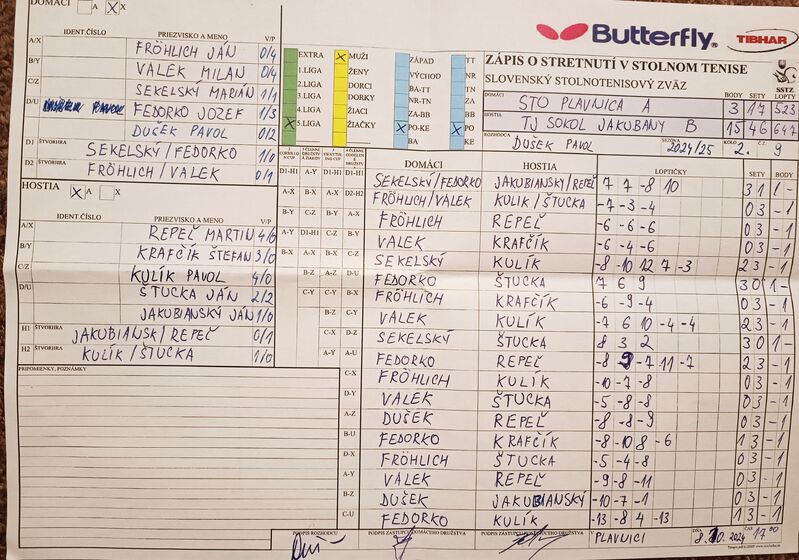 DOMÁCI A X
IDENT.ČÍSLO PRIEZVISKO A MENO V/P
A/X FRÖHLICH JÁN 0/4
B/Y VALEK MILAN 0/4
C/Z SEKELSKÝ MARIÁN 1/1
D/U PAVOL FEDORKO JOZEF 1/3
DUŠEK PAVOL 0/2
D1 ŠTVORHRA SEKELSKÝ/FEDORKO 1/0
D2 ŠTVORHRA FRÖHLICH/VALEK 0/1
HOSTIA A X
IDENT.ČÍSLO PRIEZVISKO A MENO V/P
A/X REPEĽ MARTIN 4/0
B/Y KRAFČÍK ŠTEFAN 3/0
C/Z KULÍK PAVOL 4/0
D/U ŠTUCKA JÁN 2/2
JAKUBIANSKÝ JÁN 1/0
H1 ŠTVORHRA JAKUBIANSK/REPEĽ 0/1
H2 ŠTVORHRA KULÍK/ŠTUCKA 1/0
PRIPOMIENKY, POZNÁMKY
EXTRA X MUŽI ZÁPAD TT
1.LIGA ŽENY VÝCHOD NR
2.LIGA DORCI BA-TT TN
3.LIGA DORKY NR-TN ZA
4.LIGA ŽIACI ZA-BB BB
X 5.LIGA ŽIAČKY X PO-KE X PO
BA KE
Butterfly TIBHAR
ZÁPIS O STRETNUTÍ V STOLNOM TENISE
SLOVENSKÝ STOLNOTENISOVÝ ZVÄZ
SSTZ
DOMÁCI BODY SETY LOPTY
STO PLAVNICA A 3 17 523
HOSTIA BODY SETY LOPTY
TJ SOKOL JAKUBANY B 15 46 647
ROZHODCA DUŠEK PAVOL SEZÓNA 2024/25 KOLO 2. Č. 9
DOMÁCI HOSTIA LOPTIČKY SETY BODY
SEKELSKÝ/FEDORKO JAKUBIANSKY/REPEĽ 7 7 -8 10 3 1 1 -
FRÖHLICH/VALEK KULIK/ŠTUCKA -7 -3 -4 0 3 - 1
FRÖHLICH REPEĽ -6 -6 -6 0 3 - 1
VALEK KRAFČÍK -6 -4 -6 0 3 - 1
SEKELSKÝ KULÍK -8 -10 12 7 -3 2 3 - 1
FEDORKO ŠTUCKA 7 6 9 3 0 1 -
FRÖHLICH KRAFČÍK -6 -9 -4 0 3 - 1
VALEK KULÍK -7 6 10 -4 -4 2 3 - 1
SEKELSKÝ ŠTUCKA 8 3 2 3 0 1 -
FEDORKO REPEĽ -8 9 -7 11 -7 2 3 - 1
FRÖHLICH KULÍK -10 -7 -8 0 3 - 1
VALEK ŠTUCKA -5 -8 -8 0 3 - 1
DUŠEK REPEĽ -8 -8 -9 0 3 - 1
FEDORKO KRAFČÍK -8 -10 8 -6 1 3 - 1
FRÖHLICH ŠTUCKA -5 -4 -8 0 3 - 1
VALEK REPEĽ -9 -8 -11 0 3 - 1
DUŠEK JAKUBIANSKÝ -10 -7 -1 0 3 - 1
FEDORKO KULÍK -13 -8 4 -13 1 3 - 1
PODPIS ROZHODCU PODPIS ZÁSTUPCU DOMÁCEHO DRUŽSTVA PODPIS ZÁSTUPCU HOSŤUJÚCEHO DRUŽSTVA V PLAVNICI DŇA 8.10.2024 ČAS 17 00